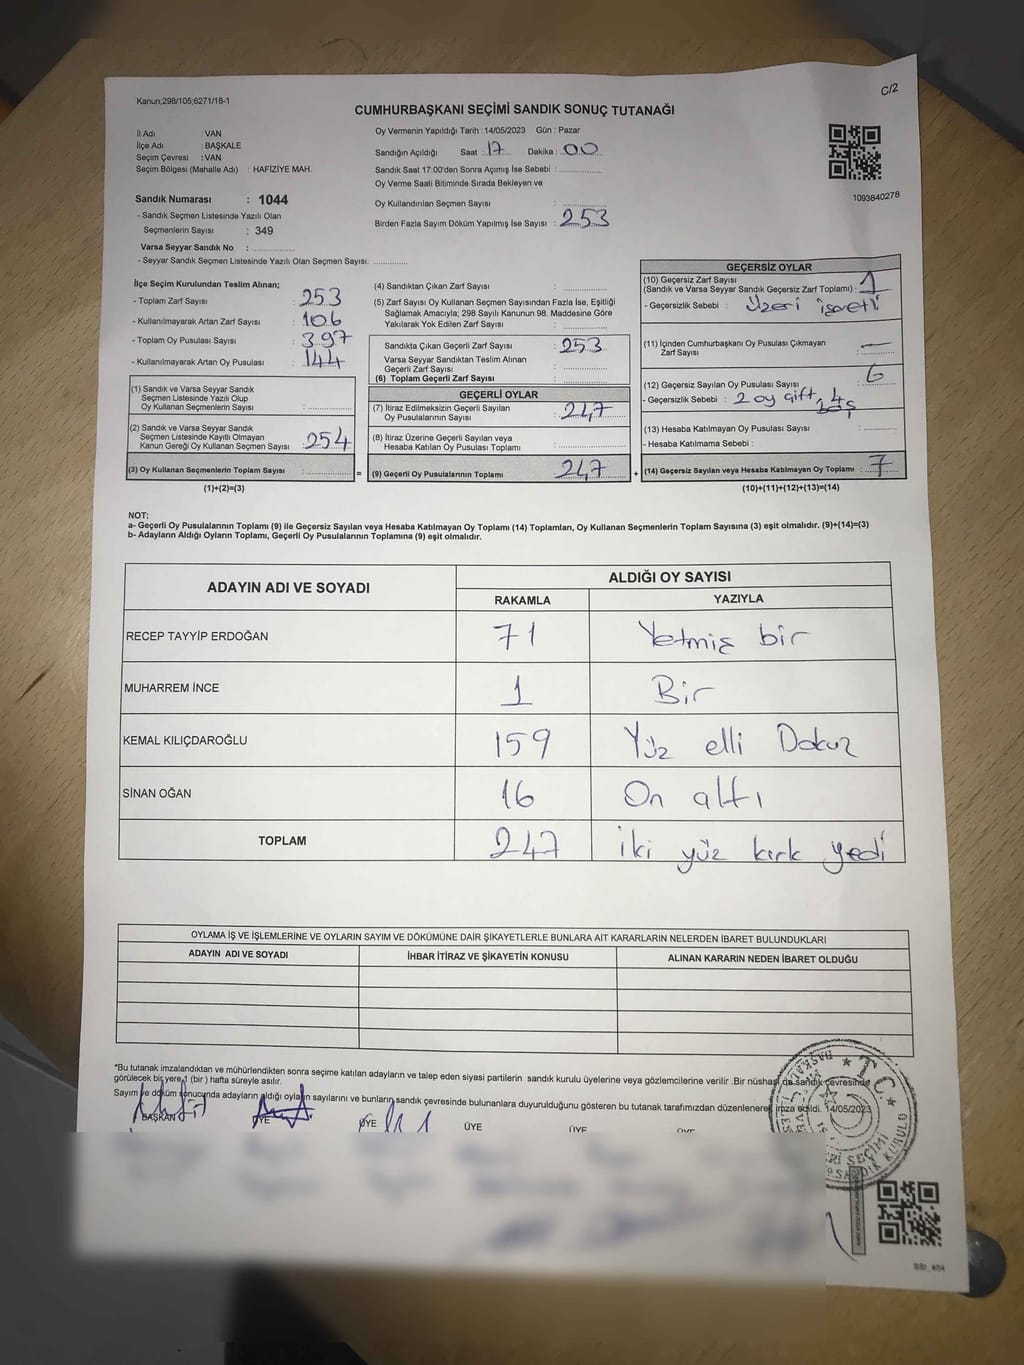 C/2
Kanun;298/105;6271/18-1
CUMHURBAŞKANI SEÇİMİ SANDIK SONUÇ TUTANAĞI
İl Adı : VAN
İlçe Adı : BAŞKALE
Seçim Çevresi : VAN
Seçim Bölgesi (Mahalle Adı) : HAFİZİYE MAH.
Sandık Numarası : 1044
- Sandık Seçmen Listesinde Yazılı Olan
Seçmenlerin Sayısı : 349
Varsa Seyyar Sandık No :
- Seyyar Sandık Seçmen Listesinde Yazılı Olan Seçmen Sayısı:
Oy Vermenin Yapıldığı Tarih : 14/05/2023 Gün : Pazar
Sandığın Açıldığı Saat : 17 Dakika : 00
Sandık Saat 17:00'den Sonra Açımış İse Sebebi :
Oy Verme Saati Bitiminde Sırada Bekleyen ve
Oy Kullandırılan Seçmen Sayısı :
Birden Fazla Sayım Döküm Yapılmış İse Sayısı : 253
1093840278
İlçe Seçim Kurulundan Teslim Alınan;
- Toplam Zarf Sayısı : 253
- Kullanılmayarak Artan Zarf Sayısı : 106
- Toplam Oy Pusulası Sayısı : 397
- Kullanılmayarak Artan Oy Pusulası : 144
(1) Sandık ve Varsa Seyyar Sandık
Seçmen Listesinde Yazılı Olup
Oy Kullanan Seçmenlerin Sayısı :
(2) Sandık ve Varsa Seyyar Sandık
Seçmen Listesinde Kayıtlı Olmayan
Kanun Gereği Oy Kullanan Seçmen Sayısı : 254
(3) Oy Kullanan Seçmenlerin Toplam Sayısı : =
(1)+(2)=(3)
(4) Sandıktan Çıkan Zarf Sayısı :
(5) Zarf Sayısı Oy Kullanan Seçmen Sayısından Fazla İse, Eşitliği
Sağlamak Amacıyla; 298 Sayılı Kanunun 98. Maddesine Göre
Yakılarak Yok Edilen Zarf Sayısı :
Sandıkta Çıkan Geçerli Zarf Sayısı : 253
Varsa Seyyar Sandıktan Teslim Alınan
Geçerli Zarf Sayısı :
(6) Toplam Geçerli Zarf Sayısı :
GEÇERLİ OYLAR
(7) İtiraz Edilmeksizin Geçerli Sayılan
Oy Pusulalarının Sayısı : 247
(8) İtiraz Üzerine Geçerli Sayılan veya
Hesaba Katılan Oy Pusulaları Toplamı :
(9) Geçerli Oy Pusulalarının Toplamı : 247 +
GEÇERSİZ OYLAR
(10) Geçersiz Zarf Sayısı
(Sandık ve Varsa Seyyar Sandık Geçersiz Zarf Toplamı) : 1
- Geçersizlik Sebebi : Üzeri işaretli
(11) İçinden Cumhurbaşkanı Oy Pusulası Çıkmayan
Zarf Sayısı : —
(12) Geçersiz Sayılan Oy Pusulası Sayısı : 6
- Geçersizlik Sebebi : 2 oy çift, 4
(13) Hesaba Katılmayan Oy Pusulası Sayısı :
- Hesaba Katılmama Sebebi :
(14) Geçersiz Sayılan veya Hesaba Katılmayan Oy Toplamı : 7
(10)+(11)+(12)+(13)=(14)
NOT:
a- Geçerli Oy Pusulalarının Toplamı (9) ile Geçersiz Sayılan veya Hesaba Katılmayan Oy Toplamı (14) Toplamları, Oy Kullanan Seçmenlerin Toplam Sayısına (3) eşit olmalıdır. (9)+(14)=(3)
b- Adayların Aldığı Oyların Toplamı, Geçerli Oy Pusulalarının Toplamına (9) eşit olmalıdır.
ADAYIN ADI VE SOYADI
ALDIĞI OY SAYISI
RAKAMLA YAZIYLA
RECEP TAYYİP ERDOĞAN 71 Yetmiş bir
MUHARREM İNCE 1 Bir
KEMAL KILIÇDAROĞLU 159 Yüz elli Dokuz
SİNAN OĞAN 16 On altı
TOPLAM 247 iki yüz kırk yedi
OYLAMA İŞ VE İŞLEMLERİNE VE OYLARIN SAYIM VE DÖKÜMÜNE DAİR ŞİKAYETLERLE BUNLARA AİT KARARLARIN NELERDEN İBARET BULUNDUKLARI
ADAYIN ADI VE SOYADI İHBAR İTİRAZ VE ŞİKAYETİN KONUSU ALINAN KARARIN NEDEN İBARET OLDUĞU
*Bu tutanak imzalandıktan ve mühürlendikten sonra seçime katılan adayların ve talep eden siyasi partilerin sandık kurulu üyelerine veya gözlemcilerine verilir .Bir nüshası da sandık çevresinde
görülecek bir yere 1 (bir ) hafta süreyle asılır.
Sayım ve döküm sonucunda adayların aldığı oyların sayılarını ve bunların sandık çevresinde bulunanlara duyurulduğunu gösteren bu tutanak tarafımızdan düzenlenerek imza edildi. 14/05/2023
BAŞKAN ÜYE ÜYE ÜYE ÜYE ÜYE
T.C.